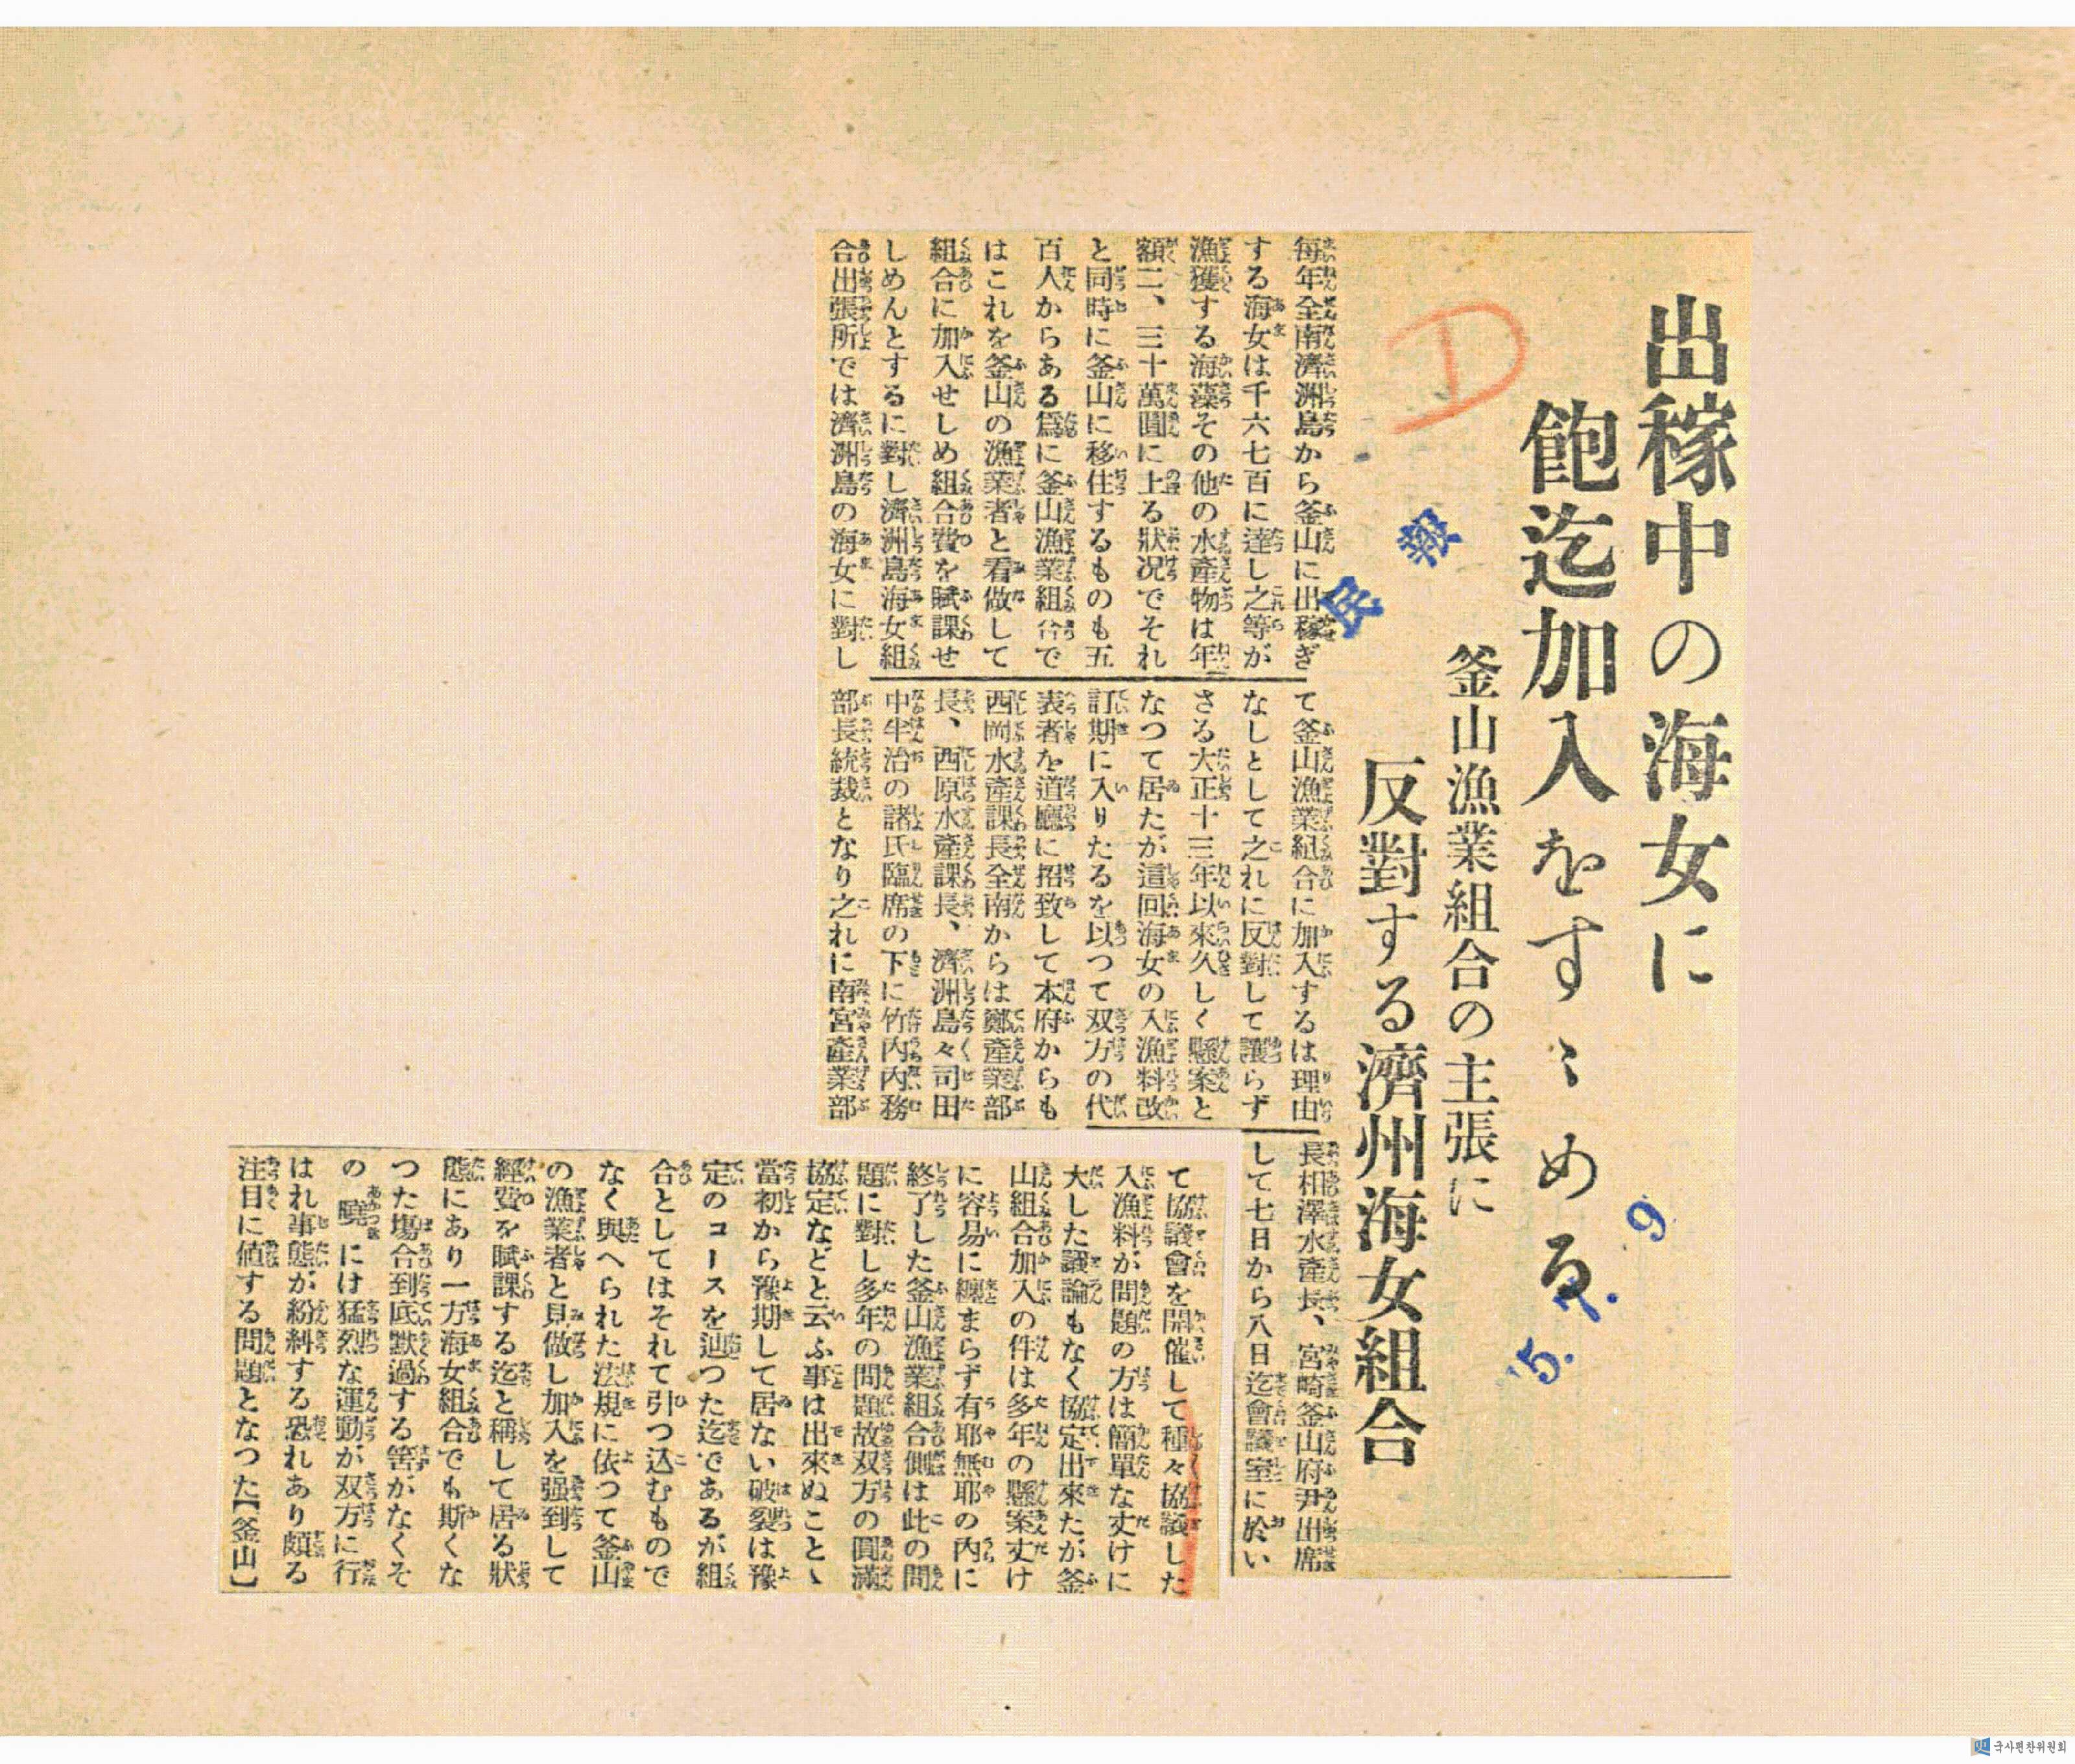 出稼中の海女に
飽迄加入をすゝめる
釜山漁業組合の主張に
反對する濟州海女組合
民報
5. 7. 9
D
毎年全南濟洲島から釜山に出稼ぎ
する海女は千六七百に達し之等が
漁獲する海藻その他の水產物は年
額二、三十萬圓に上る狀況でそれ
と同時に釜山に移住するものも五
百人からある爲に釜山漁業組合で
はこれを釜山の漁業者と看做して
組合に加入せしめ組合費を賦課せ
しめんとするに對し濟洲島海女組
合出張所では濟洲島の海女に對し
て釜山漁業組合に加入するは理由
なしとして之れに反對して讓らず
さる大正十三年以來久しく懸案と
なつて居たが這回海女の入漁料改
訂期に入りたるを以つて双方の代
表者を道廳に招致して本府からも
西岡水產課長全南からは鄭產業部
長、西原水產課長、濟洲島々司田
中半治の諸氏臨席の下に竹内内務
部長統裁となり之れに南宮產業部
長相澤水產長、宮崎釜山府尹出席
して七日から八日迄會議室に於い
て協議會を開催して種々協議した
入漁料が問題の方は簡單な丈けに
大した議論もなく協定出來たが釜
山組合加入の件は多年の懸案丈け
に容易に纏まらず有耶無耶の内に
終了した釜山漁業組合側は此の問
題に對し多年の問題故双方の圓滿
協定などと云ふ事は出來ぬことゝ
當初から豫期して居ない破裂は豫
定のコースを辿つた迄であるが組
合としてはそれて引つ込むもので
なく與へられた法規に依つて釜山
の漁業者と見做し加入を强到して
經費を賦課する迄と稱して居る狀
態にあり一方海女組合でも斯くな
つた場合到底默過する筈がなくそ
の曉には猛烈な運動が双方に行
はれ事態が紛糾する恐れあり頗る
注目に値する問題となつた【釜山】
국사편찬위원회